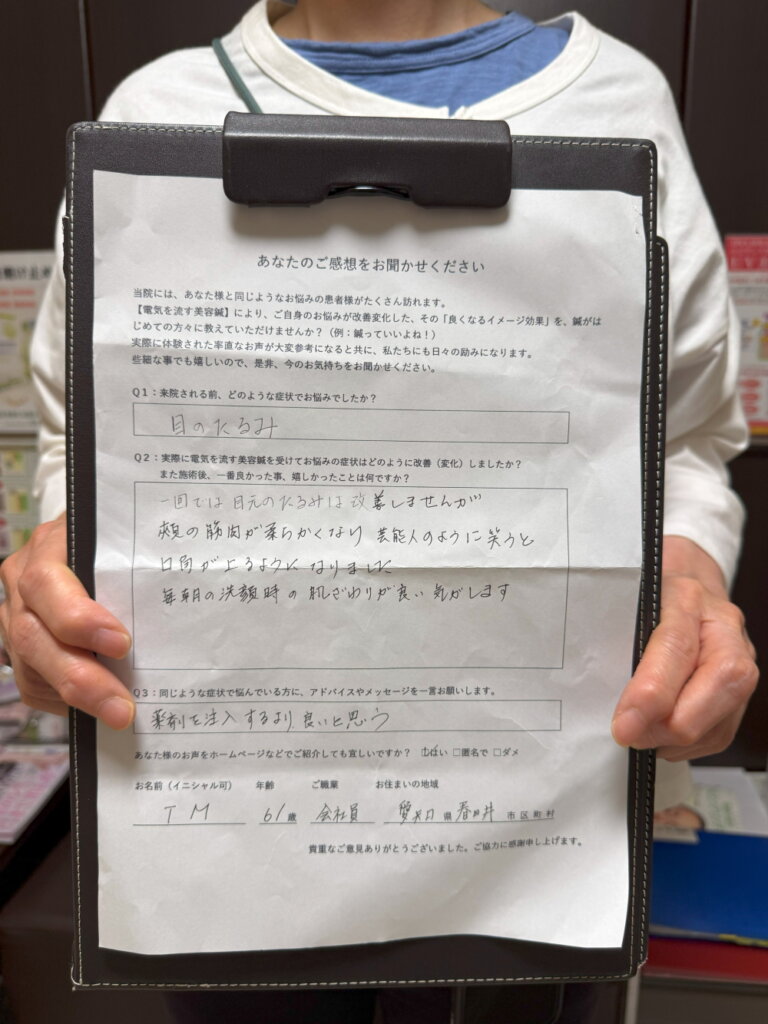 あなたのご感想をお聞かせください
当院には、あなた様と同じようなお悩みの患者様がたくさん訪れます。
【電気を流す美容鍼】により、ご自身のお悩みが改善変化した、その「良くなるイメージ効果」を、鍼がは
じめての方々に教えていただけませんか？（例：鍼っていいよね！）
実際に体験された率直なお声が大変参考になると共に、私たちにも日々の励みになります。
些細な事でも嬉しいので、是非、今のお気持ちをお聞かせください。
Q1：来院される前、どのような症状でお悩みでしたか？
目のたるみ
Q2：実際に電気を流す美容鍼を受けてお悩みの症状はどのように改善（変化）しましたか？
また施術後、一番良かった事、嬉しかったことは何ですか？
一回では目元のたるみは改善しませんが
頬の筋肉が柔らかくなり 芸能人のように笑うと
口角が上るようになりました
毎朝の洗顔時の肌ざわりが良い気がします
Q3：同じような症状で悩んでいる方に、アドバイスやメッセージを一言お願いします。
薬剤を注入するより良いと思う
あなた様のお声をホームページなどでご紹介しても宜しいですか？ ☑はい □匿名で □ダメ
お名前（イニシャル可） 年齢 ご職業 お住まいの地域
T M 61歳 会社員 愛知県 春日井 市区町村
貴重なご意見ありがとうございました。ご協力に感謝申し上げます。